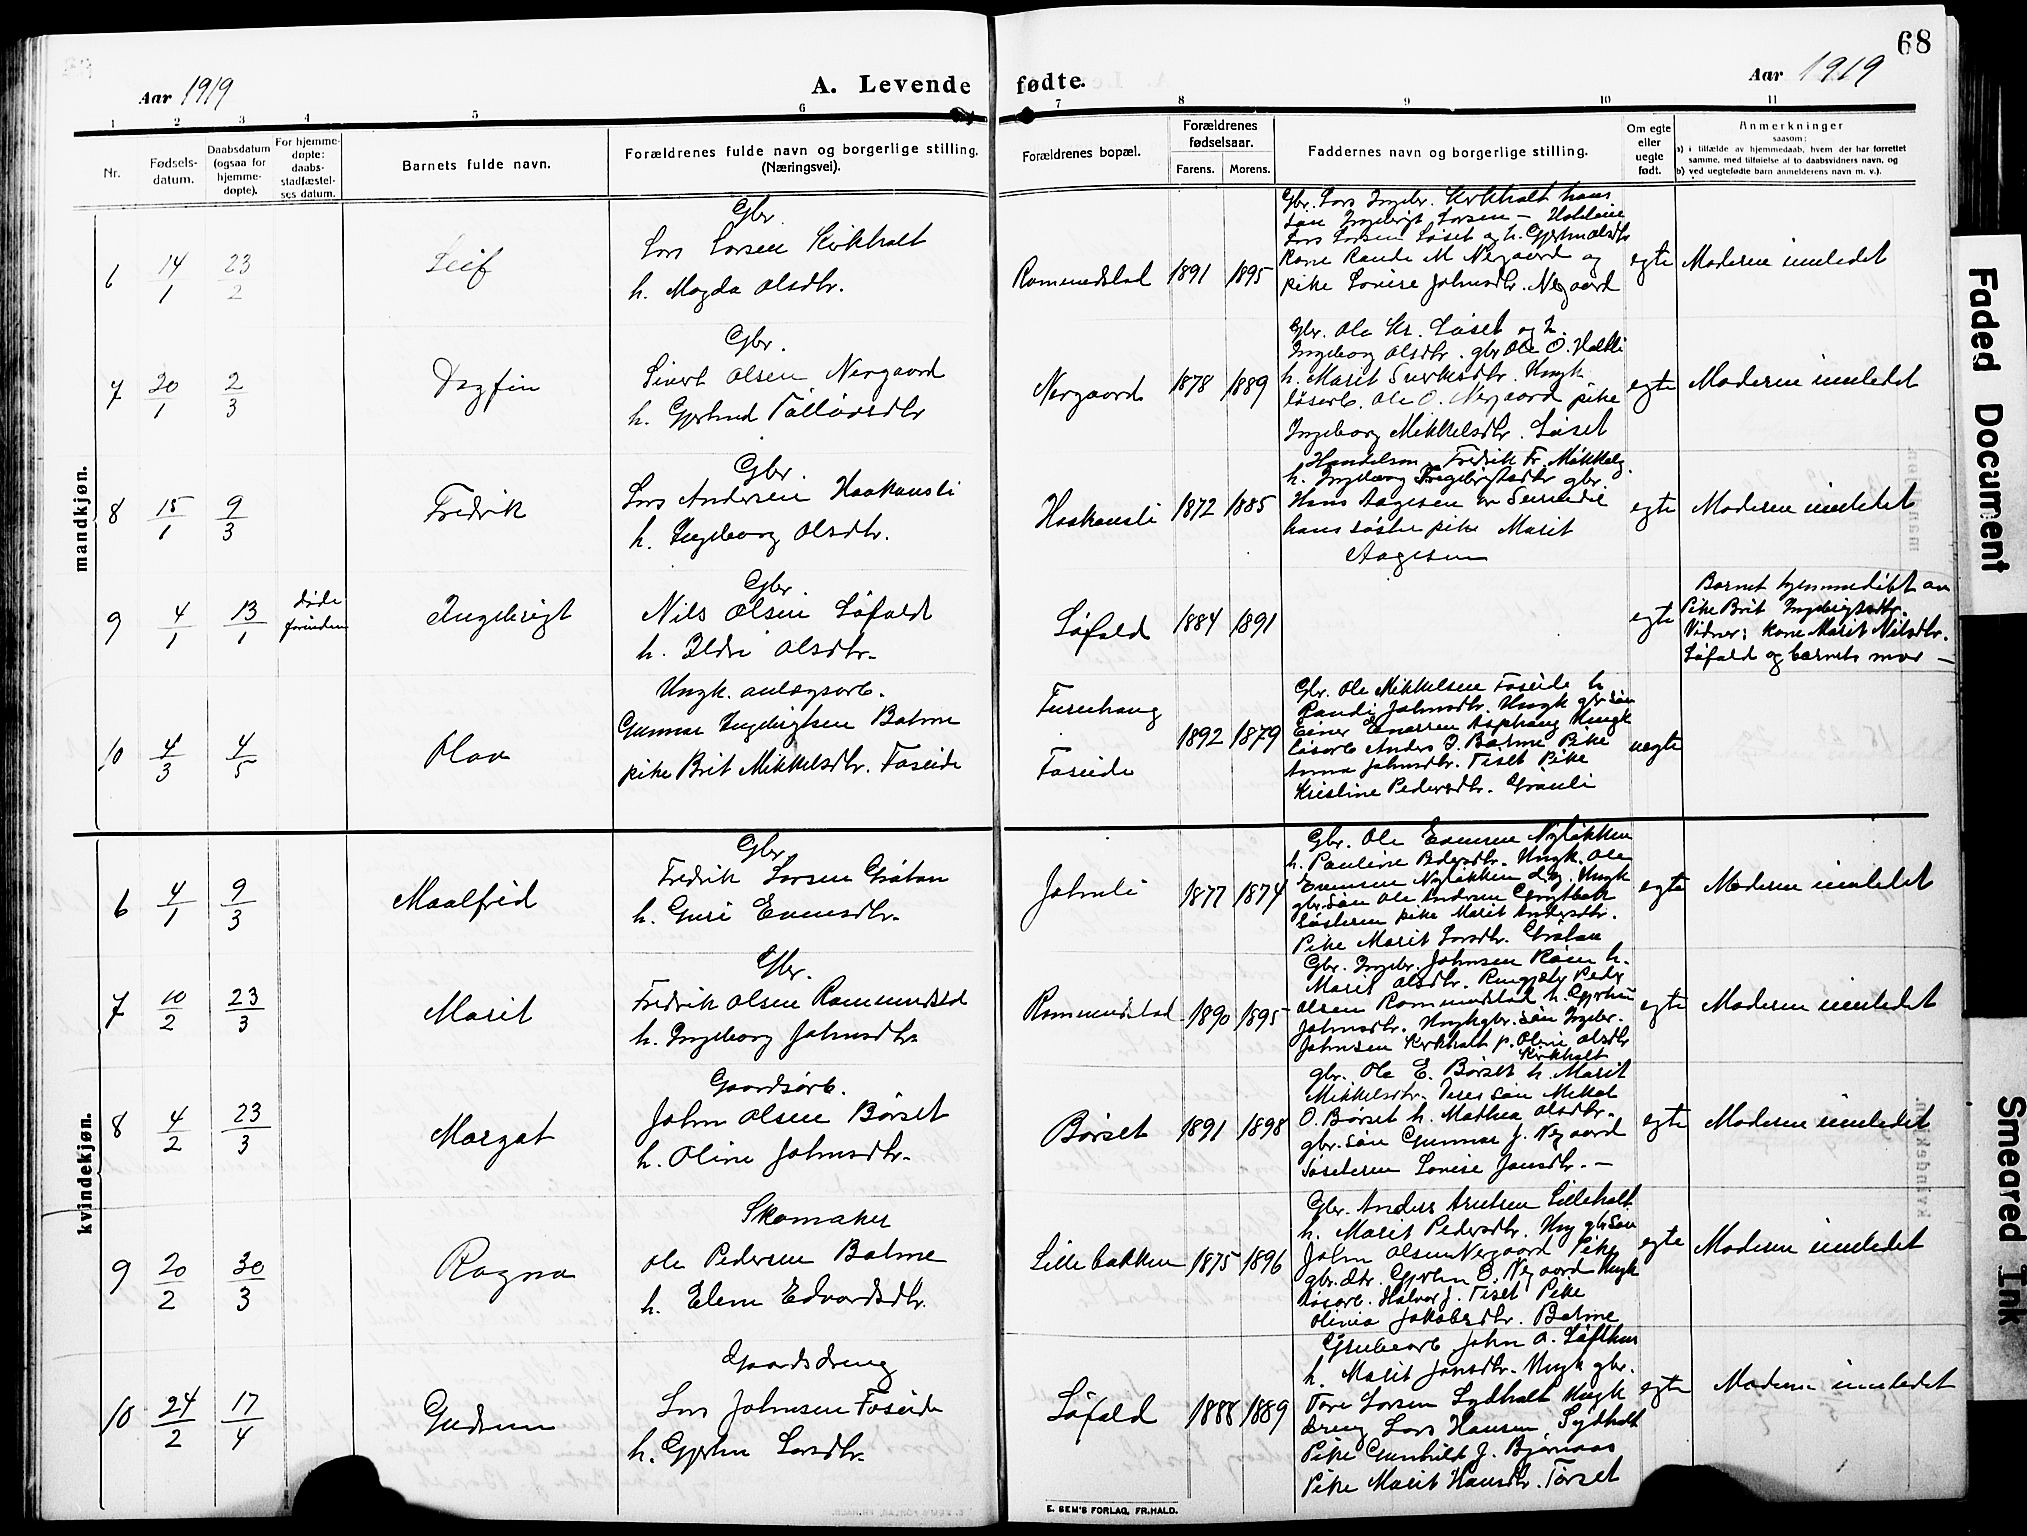 68
Aar 1919
A. Levende fødte.
Aar 1919
1 2 3 4 5 6 7 8 9 10 11
Nr.
Fødsels-
datum.
Daabsdatum
(ogsaa for
hjemme-
døpte).
For hjemme-
døpte:
daabs-
stadfæstel-
ses datum.
Barnets fulde navn.
Forældrenes fulde navn og borgerlige stilling.
(Næringsvei).
Forældrenes bopæl.
Forældrenes
fødselsaar.
Farens. Morens.
Faddernes navn og borgerlige stilling.
Om egte
eller
uegte
født.
Anmerkninger
saasom:
a) i tilfælde av hjemmedaab, hvem der har forrettet
samme, med tilføielse af to daabsvidners navn, og
b) ved uegtefødte barn anmelderens navn m. v.).
mandkjøn.
6 14/1 23/2 Leif
Gbr.
Lars Larsen Kirkholt
h. Magda Olsdtr.
Rommundstad 1891 1895
Gbr. Lars Ingebr. Kirkholt hans
søn Ingebrigt Larsen –
Lars Larsen Løset og h. Gjertru Olsdtr
Kone Rande M Nergaard og
pike Lovise Johnsdtr. Nergaard
egte Moderen innledet
7 20/1 2/3 Dagfin
Gbr.
Sivert Olsen Nergaard
h. Gjertrud Tølløvsdtr
Nergaard 1878 1889
Gbr. Ole Kr. Løset og h.
Ingeborg Olsdtr. gbr Ole O. Holtli
h. Marit Sivertsdtr. Ungk
løsarb. Ole O. Nergaard pike
Ingeborg Mikkelsdtr. Løset
egte Moderen innledet
8 15/1 9/3 Fredrik
Gbr.
Lars Andersen Haakansli
h. Ingeborg Olsdtr.
Haakansli 1872 1885
Handelsm. Fredrik Fr. Mikkels.
h. Ingeborg Ingebrigtsdtr gbr.
Hans Aagesen
hans søster pike Marit
Aagesen
egte Moderen innledet
9 4/1 13/1 døde
forinden
Ingebrigt
Gbr.
Nils Olsen Løfald
h. Eldri Olsdtr.
Løfald 1884 1891
egte
Barnet hjemmedøbt av
Pike Brit Ingebrigtsdtr.
Vidner: Kone Marit Nilsdtr.
Løfald og barnets mor –
10 4/3 4/5 Olav
Ungk. anlægsarb.
Gunnar Ingebrigtsen Bolme
pike Brit Mikkelsdtr. Foseide
Furuhaug
Foseide
1892 1879
Gbr. Ole Mikkelsen Foseide h
Randi Johnsdtr. Ungk gbr søn
Einar Einarsen Asphaug Ungk
løsarb Anders O. Bolme Pike
Anna Johnsdtr. Tiset Pike
Kristine Pedersdtr. Granli
uegte
kvindekjøn.
6 4/1 9/3 Maalfrid
Gbr
Fredrik Larsen Gråtan
h. Guri Evensdtr.
Johnsli 1877 1874
Gbr. Ole Evensen Nyløkken
h. Pauline Pedersdtr. Ungk. Ole
Evensen Nyløkken d.y. Ungk
gbr. søn Ole Andersen
søsteren pike Marit Andersdtr.
Pike Marit Larsdtr. Gråtan
egte Moderen innledet
7 10/2 23/3 Marit
Gbr.
Fredrik Olsen Rommundstad
h. Ingeborg Johnsdtr.
Rommundstad 1890 1895
Gbr. Ingebr. Johnsen Røen h.
Marit Olsdtr. Ringjæter Peder
Olsen Rommundstad h. Gjertru
Johnsdtr. Ungk gbr. søn Ingebr.
Johnsen Kirkholt p. Oline Olsdtr
Kirkholt
egte Moderen innledet
8 4/2 23/3 Margot
Gaardsarb.
John Olsen Børset
h. Oline Johnsdtr.
Børset 1891 1898
gbr. Ole E. Børset h. Marit
Mikkelsdtr. Deres søn Mikal
O. Børset h. Mathea Olsdtr.
gbr. søn Gunnar J. Nergaard
Søsteren Lovise Jonsdtr. –
egte Moderen innledet
9 20/2 30/3 Ragna
Skomaker
Ole Pedersen Bolme
h. Elen Edvardsdtr.
Lillebakken 1875 1896
Gbr. Anders Arntsen Lilleholt
h. Marit Pedersdtr. Ung gbr søn
John Olsen Nergaard Pike
gbr. dtr. Gjertru O. Nergaard Ungk
løsarb. Halvor J. Tiset Pike
Olivia Jakobsdtr. Bolme
egte Moderen innledet
10 24/2 17/4 Gudrun
Gaardsdreng
Lars Johnsen Foseide
h. Gjertru Larsdtr.
Løfald 1888 1889
Grubearb John O. Løfthus
h. Marit Jonsdtr. Ungk gbr.
Tore Larsen Sydholt Ungk
dreng Lars Hansen Sydholt
Pike Gunhild J. Bjørnaas
Pike Marit Hansdtr. Torset
egte Moderen innledet
E. SEM'S FORLAG, FR.HALD.
Faded Document
Smeared Ink